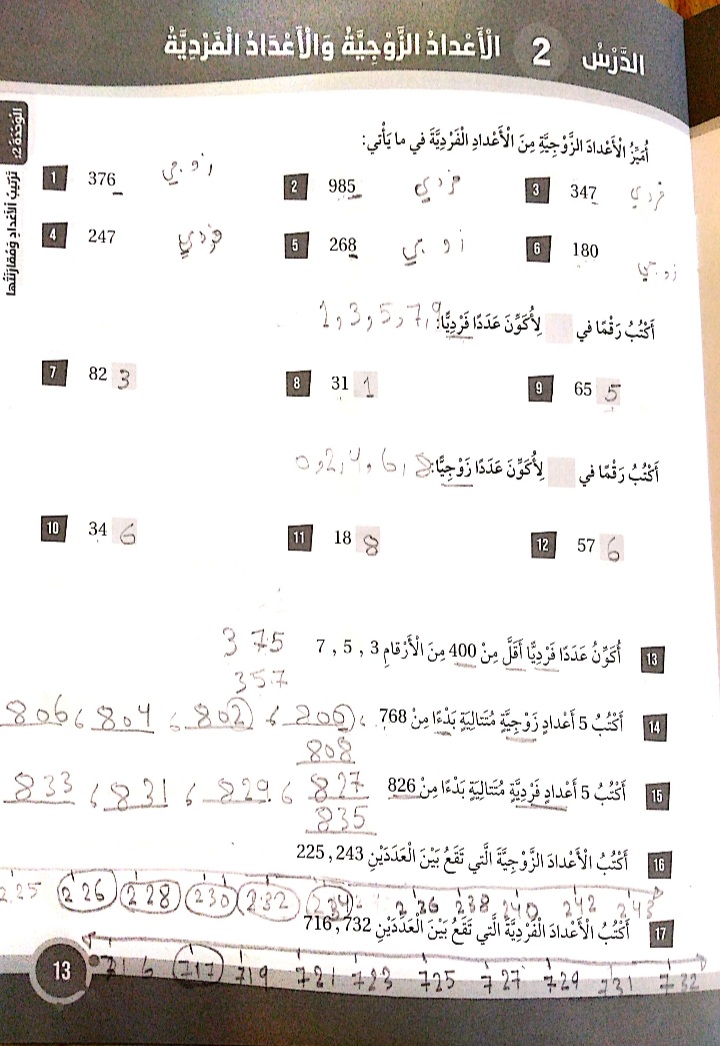 الدَّرْسُ 2 الْأَعْدَادُ الزَّوْجِيَّةُ وَالْأَعْدَادُ الْفَرْدِيَّةُ
الوَحْدَةُ 2: تَرْتيبُ الْأَعْدَادِ وَمُقَارَنَتُها
أُمَيِّزُ الْأَعْدَادَ الزَّوْجِيَّةَ مِنَ الْأَعْدَادِ الْفَرْدِيَّةِ في ما يَأْتي:
1 376 زوجي 2 985 فردي 3 347 فردي
4 247 فردي 5 268 زوجي 6 180 زوجي
أَكْتُبُ رَقْمًا في لِأُكَوِّنَ عَدَدًا فَرْدِيًّا: 1, 3, 5, 7, 9
7 82 3 8 31 1 9 65 5
أَكْتُبُ رَقْمًا في لِأُكَوِّنَ عَدَدًا زَوْجِيًّا: 0, 2, 4, 6, 8
10 34 6 11 18 8 12 57 6
13 أُكَوِّنُ عَدَدًا فَرْدِيًّا أَقَلَّ مِنْ 400 مِنَ الْأَرْقامِ 3 , 5 , 7 375
357
14 أَكْتُبُ 5 أَعْدادٍ زَوْجِيَّةٍ مُتَتالِيَةٍ بَدْءًا مِنْ 768، 800 ، 802 ، 804 ، 806
808
15 أَكْتُبُ 5 أَعْدادٍ فَرْدِيَّةٍ مُتَتالِيَةٍ بَدْءًا مِنْ 826 827 ، 829 ، 831 ، 833
835
16 أَكْتُبُ الْأَعْدادَ الزَّوْجِيَّةَ الَّتي تَقَعُ بَيْنَ الْعَدَدَيْنِ 225 , 243
225 226 228 230 232 234 236 238 240 242 243
17 أَكْتُبُ الْأَعْدادَ الْفَرْدِيَّةَ الَّتي تَقَعُ بَيْنَ الْعَدَدَيْنِ 716 , 732
716 717 719 721 723 725 727 729 731 732
13